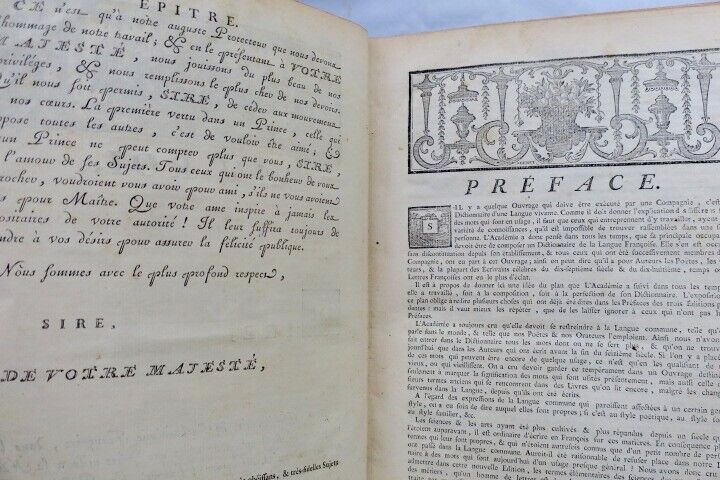 ÉPITRE.
CE n'est qu'à notre auguste Protecteur que nous devons
l'hommage de notre travail; & en le présentant à VOTRE
MAJESTÉ, nous jouissons du plus beau de nos
privilèges, & nous remplissons le plus cher de nos devoirs.
qu'il nous soit permis, SIRE, de céder aux mouvemens
nos cœurs. La première vertu dans un Prince, celle qui
pose toutes les autres, c'est de vouloir être aimé; &
un Prince ne peut compter plus que vous, SIRE,
l'amour de ses Sujets. Tous ceux qui ont le bonheur de vous
procher, voudroient vous avoir pour ami, s'ils ne vous avoient
pour Maître. Que votre ame inspire à jamais les
positaires de votre autorité! Il leur suffira toujours de
ndre à vos désirs pour assurer la félicité publique.
Nous sommes avec le plus profond respect,
SIRE,
DE VOTRE MAJESTÉ,
obéissans, & très-fidelles Sujets
PRÉFACE.
S'IL y a quelque Ouvrage qui doive être exécuté par une Compagnie, c'est
Dictionnaire d'une Langue vivante. Comme il doit donner l'explication des différens
des mots qui sont en usage, il faut que ceux qui entreprennent d'y travailler, ayent
variété de connoissances, qu'il est impossible de trouver rassemblées dans une
personne. L'Académie a donc pensé dans tous les temps, que sa principale
devoit être de composer un Dictionnaire de la Langue Françoise. Elle s'en est
sans discontinuation depuis son établissement, & tous ceux qui ont été successivement membres
Compagnie, ont eu part à cet Ouvrage; ainsi on peut dire qu'il a pour Auteurs les Poëtes, les
teurs, & la plupart des Ecrivains célèbres du dix-septième siècle & du dix-huitième, temps
Lettres Françoises ont eu le plus d'éclat.
Il est à propos de donner ici une idée du plan que L'Académie a suivi dans tous les temps
elle a travaillé, soit à la composition, soit à la perfection de son Dictionnaire. L'exposition
ce plan oblige à redire plusieurs choses qui ont déjà été dites dans les Préfaces des trois Editions
dentes: mais il vaut mieux les répéter, que de les laisser ignorer à ceux qui n'ont pas
Préfaces.
L'Académie a toujours cru qu'elle devoit se restreindre à la Langue commune, telle qu'on
parle dans le monde, & telle que nos Poëtes & nos Orateurs l'emploient. Ainsi nous n'avons
fait entrer dans le Dictionnaire tous les mots dont on ne se sert plus, & qu'on
aujourd'hui que dans les Auteurs qui ont écrit avant la fin du seizième Siècle. Si l'on y a placé
de ces mots qui peuvent être encore de quelque usage, ce n'est qu'en les qualifiant de
mots, ou qui vieillissent. On a cru devoir garder ce tempérament dans un Ouvrage
seulement à marquer la signification des mots qui sont d'usage présentement, mais aussi celle
sieurs termes anciens qui se rencontrent dans des Livres qu'on lit encore, malgré les
survenus dans la Langue depuis qu'ils ont été écrits.
A l'égard des expressions de la Langue commune qui paroissent affectées à un certain genre
style, on a eu soin de dire auquel elles sont propres; si c'est au style poëtique, au style
au style familier, &c.
Les sciences & les arts ayant été plus cultivés & plus répandus depuis un siècle
l'étoient auparavant, il est ordinaire d'écrire en François sur ces matières. En conséquence
termes qui leur sont propres, & qui n'étoient autrefois connus que d'un petit nombre de
ont passé dans la Langue commune. Auroit-il été raisonnable de refuser place dans notre
à des mots qui sont aujourd'hui d'un usage presque général? Nous avons donc cru
admettre dans cette nouvelle Edition, les termes élémentaires des sciences,
métiers, qu'un homme de lettres est